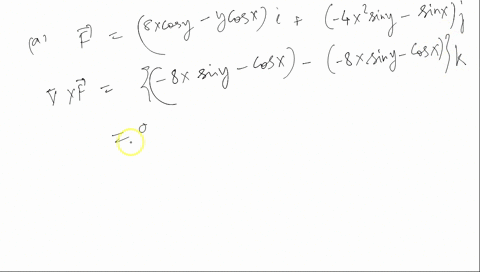 (a) F⃗ = (8xcosy - ycosx) i + (-4x²siny - sinx) j
∇ x F⃗ = {(-8x siny - cosx) - (-8x siny - cosx)} k
= 0